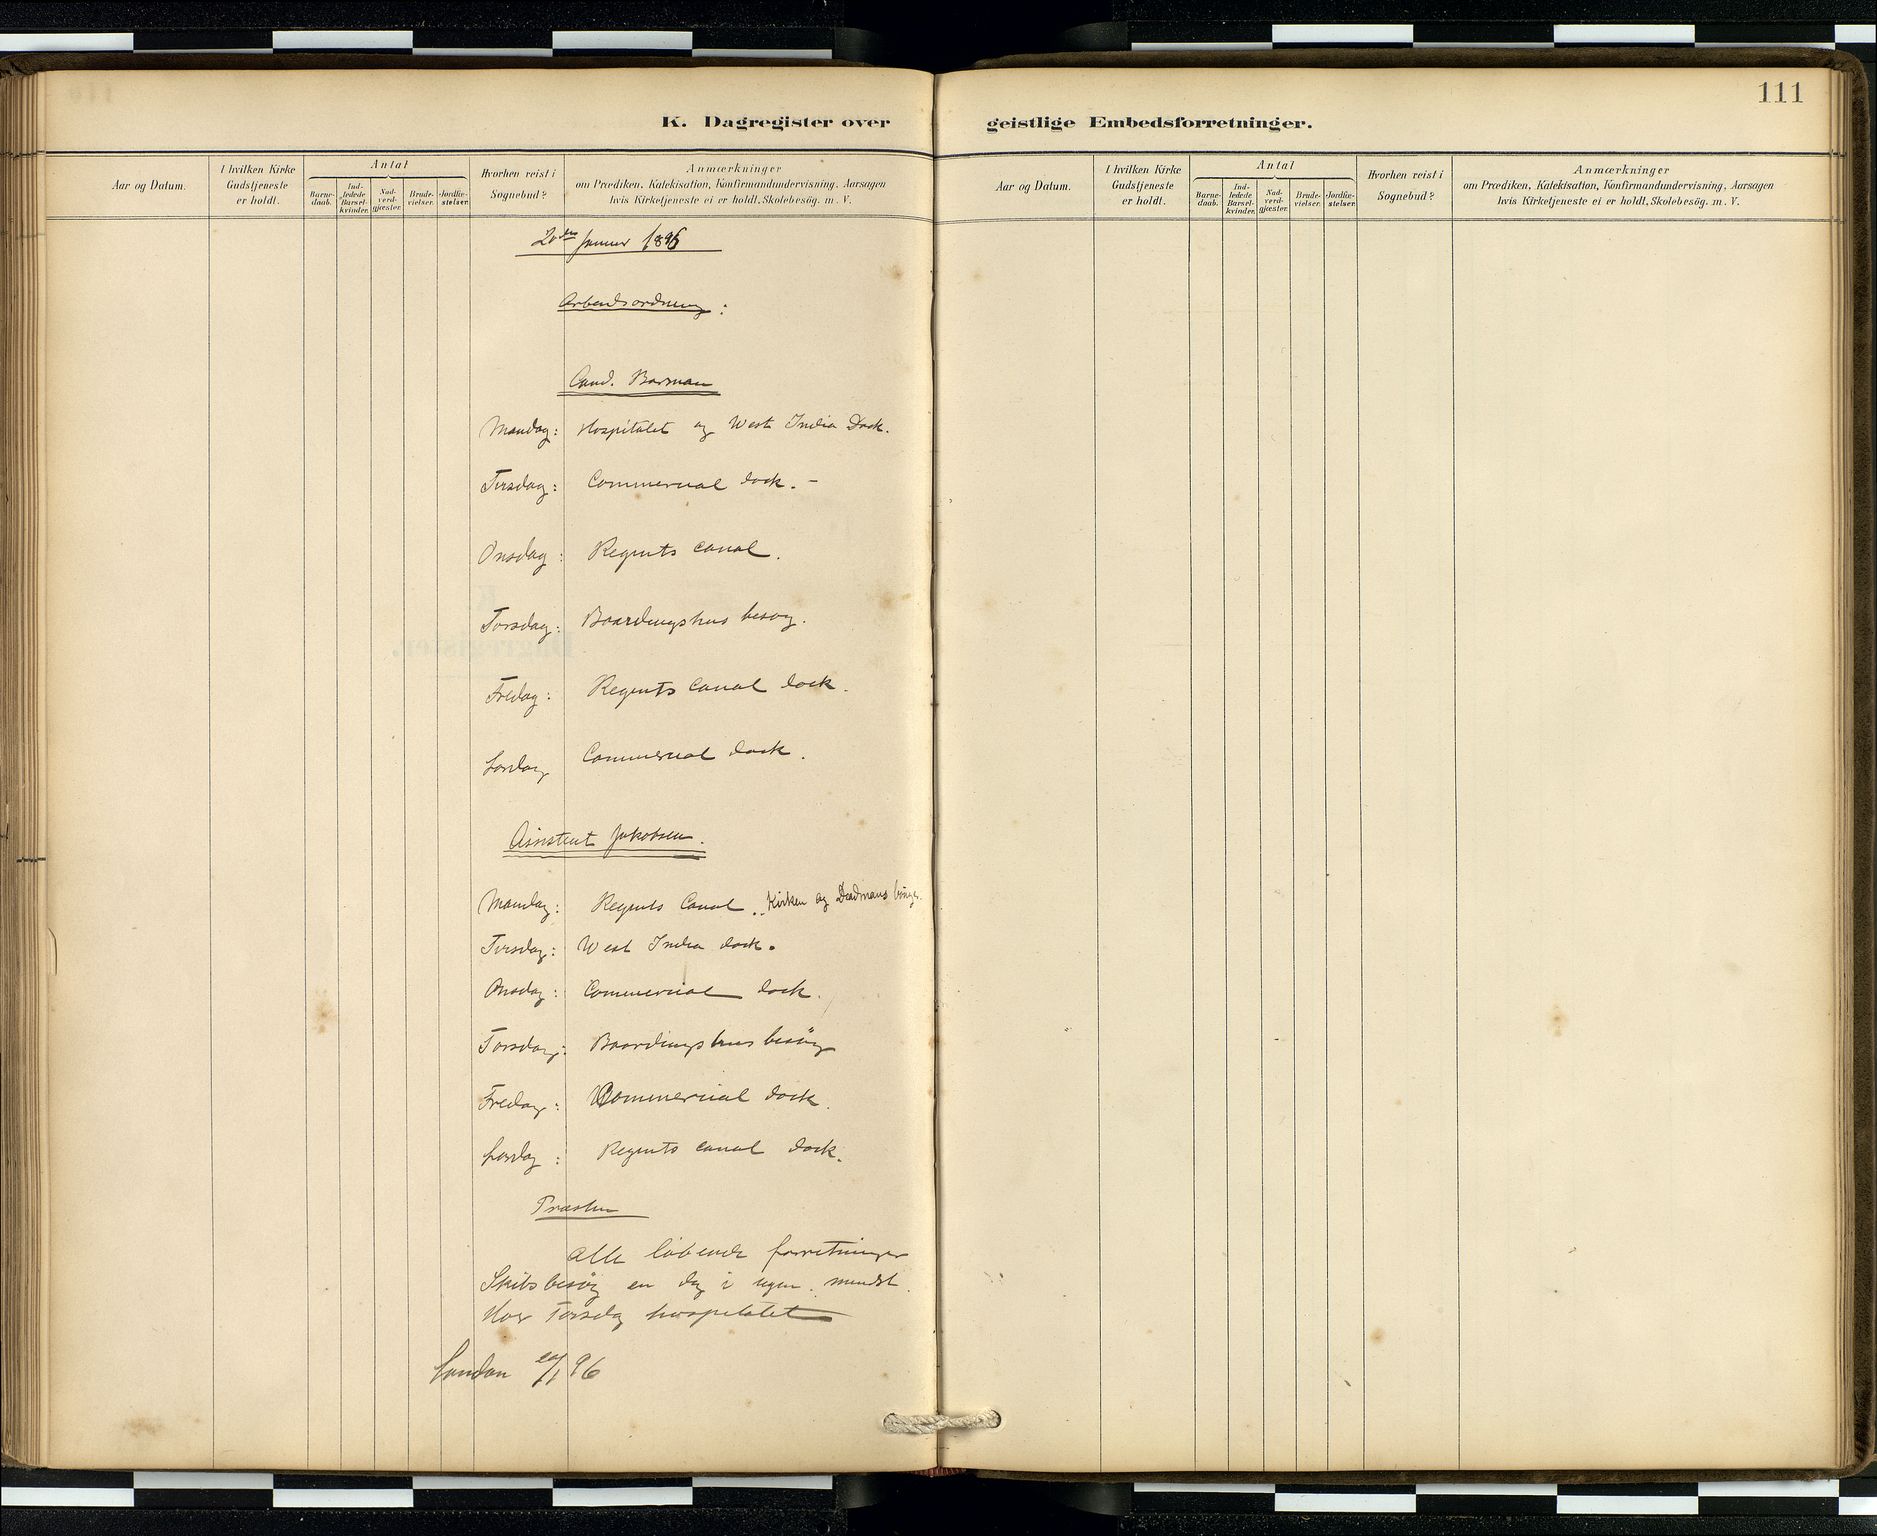 111
K. Dagregister over geistlige Embedsforretninger.
Aar og Datum.
I hvilken Kirke Gudstjeneste er holdt.
Antal
Barne-daab.
Ind-ledede Barsel-kvinder.
Nad-verd-gjæster.
Brude-vielser.
Jordfæ-stelser.
Hvorhen reist i Sognebud?
Anmærkninger
om Prædiken, Katekisation, Konfirmandundervisning, Aarsagen
hvis Kirketjeneste ei er holdt, Skolebesög. m. V.
Aar og Datum.
I hvilken Kirke Gudstjeneste er holdt.
Antal
Barne-daab.
Ind-ledede Barsel-kvinder.
Nad-verd-gjæster.
Brude-vielser.
Jordfæ-stelser.
Hvorhen reist i Sognebud?
Anmærkninger
om Prædiken, Katekisation, Konfirmandundervisning, Aarsagen
hvis Kirketjeneste ei er holdt, Skolebesög. m. V.
20de Januar 1896
Arbeidsordning:
Cand. Barman
Mandag: Hospitalet og West India Dock.
Tirsdag: Commercial dock. –
Onsdag: Regents Canal.
Torsdag: Boardingshus besøg.
Fredag: Regents Canal dock.
Lørdag Commercial dock.
Assistent Jakobsen.
Mandag: Regents Canal. Kirken og Deadmans
Tirsdag: West India dock.
Onsdag: Commercial dock.
Torsdag: Boardingshus besög
Fredag: Commercial dock.
Lørdag: Regents canal dock.
Præsten
Alle løbende forretninger
Skibsbesög en dag i ugen mindst.
Hver Torsdag hospitalet
London 20/1 96